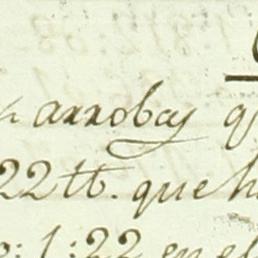 arrobas q
22 tt. que h
: 1: 22 en el